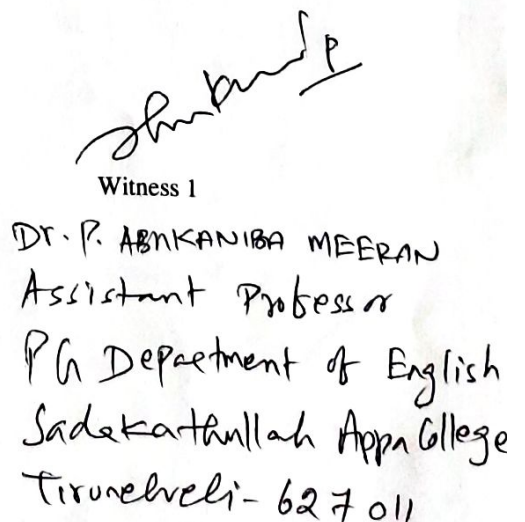 Witness 1
Dr. P. MEERAN
Assistant Professor
PG Department of English
Sadakathullah Appa College
Tirunelveli - 627 011